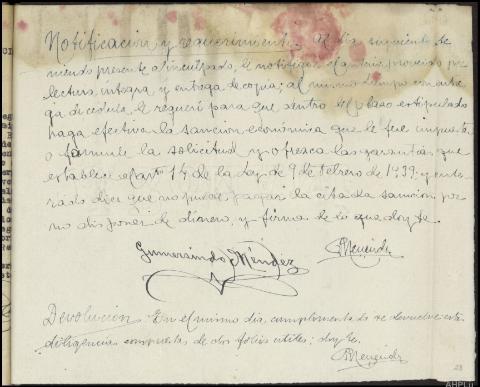 Notificación y requerimiento. Al dia siguiente te
niendo presente al inculpado, le notifiqué el anterior proveido por
lectura íntegra y entrega de copia; al mismo tiempo con entre
ga de cédula, le requerí para que dentro del plazo estipulado
haga efectiva la sanción económica que le fue impuesta
o formule la solicitud y ofrezca las garantías que
establece el art 14 de la Ley de 9 de Febrero de 1939; y ente
rado dice que no puede pagar la citada sanción por
no disponer de dinero, y firma de lo que doy fe.
Gumersindo Méndez
Menéndez
Devolución En el mismo dia, cumplimentado se devuelve esta
diligencias compuesta de dos folios utiles; doy fe.
Menéndez
AHPLu